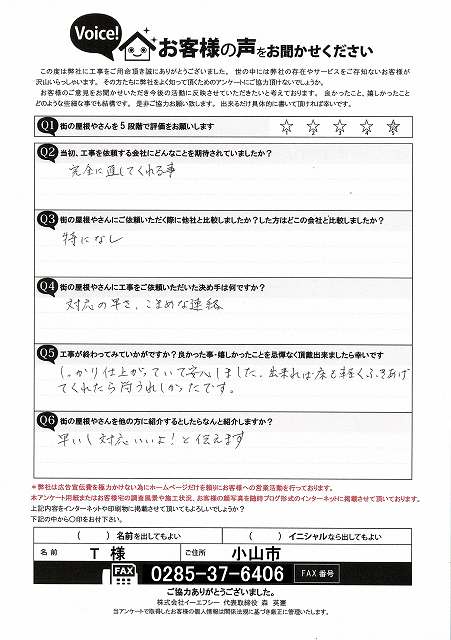 Voice!
お客様の声をお聞かせください
この度は弊社に工事をご用命頂き誠にありがとうございました。 世の中には弊社の存在やサービスをご存知ないお客様が
沢山いらっしゃいます。 その方たちに弊社をよく知って頂くためのアンケートにご協力頂けないでしょうか。
お客様のご意見をお聞かせいただき今後の活動に反映させていただきたいと考えております。 良かったこと、嬉しかったこと
どのような些細な事でも結構です。 是非ご協力お願い致します。 出来るだけ具体的に書いて頂ければ幸いです。
Q1 街の屋根やさんを5段階で評価をお願いします
1 2 3 4 5
Q2 当初、工事を依頼する会社にどんなことを期待されていましたか?
完全に直してくれる事
Q3 街の屋根やさんにご依頼いただく際に他社と比較しましたか?した方はどこの会社と比較しましたか?
特になし
Q4 街の屋根やさんに工事をご依頼いただいた決め手は何ですか?
対応の早さ、こまめな連絡
Q5 工事が終わってみていかがですか?良かった事・嬉しかったことを忌憚なく頂戴出来ましたら幸いです
しっかり仕上がっていて安心しました、出来れば床も軽くふきあげ
てくれたら尚うれしかったです。
Q6 街の屋根やさんを他の方に紹介するとしたらなんと紹介しますか?
早いし対応いいよ!と伝えます
*弊社は広告宣伝費を極力かけない為にホームページだけを頼りにお客様への営業活動を行っております。
本アンケート用紙またはお客様宅の調査風景や施工状況、お客様の顔写真を随時ブログ形式のインターネットに掲載させて頂いております。
上記内容をインターネットや印刷物に掲載させて頂いてもよろしいでしょうか?
下記の中から〇印をお付下さい。
( )名前を出してもよい ( )イニシャルなら出してもよい
名前 T 様 ご住所 小山市
FAX 0285-37-6406 FAX番号
ご協力ありがとうございました。
株式会社イーエフシー 代表取締役 森 英憲
当アンケートで取得したお客様の個人情報は関係法規に基づき厳正に管理いたします。